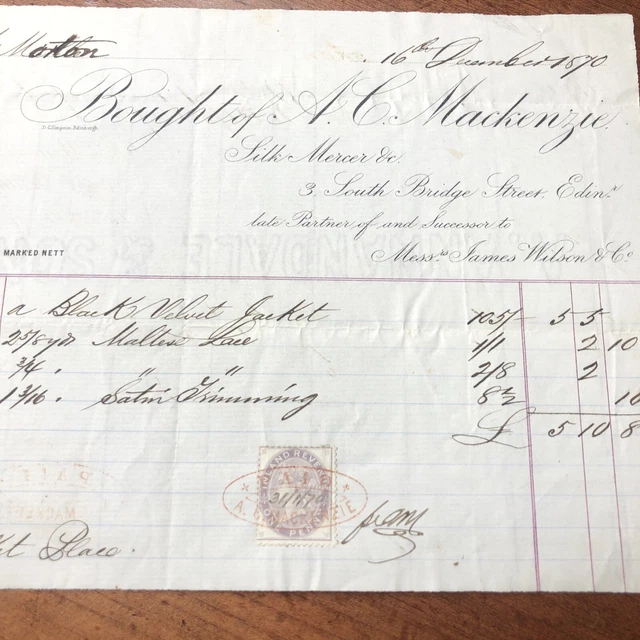 Morton 16th December 1870
Bought of A. C. Mackenzie
Silk Mercer &c.
3, South Bridge Street, Edinr.
late Partner of and Successor to
MARKED NETT Messrs. James Wilson & Co.
a Black Velvet Jacket 105/ 5 5
2 5/8 yds Maltese Lace 1/1 2 10
3/4 . " " 2/8 2
1 3/16 . Satin Trimming 8½ 10
£ 5 10 8
INLAND REVENUE
Place.